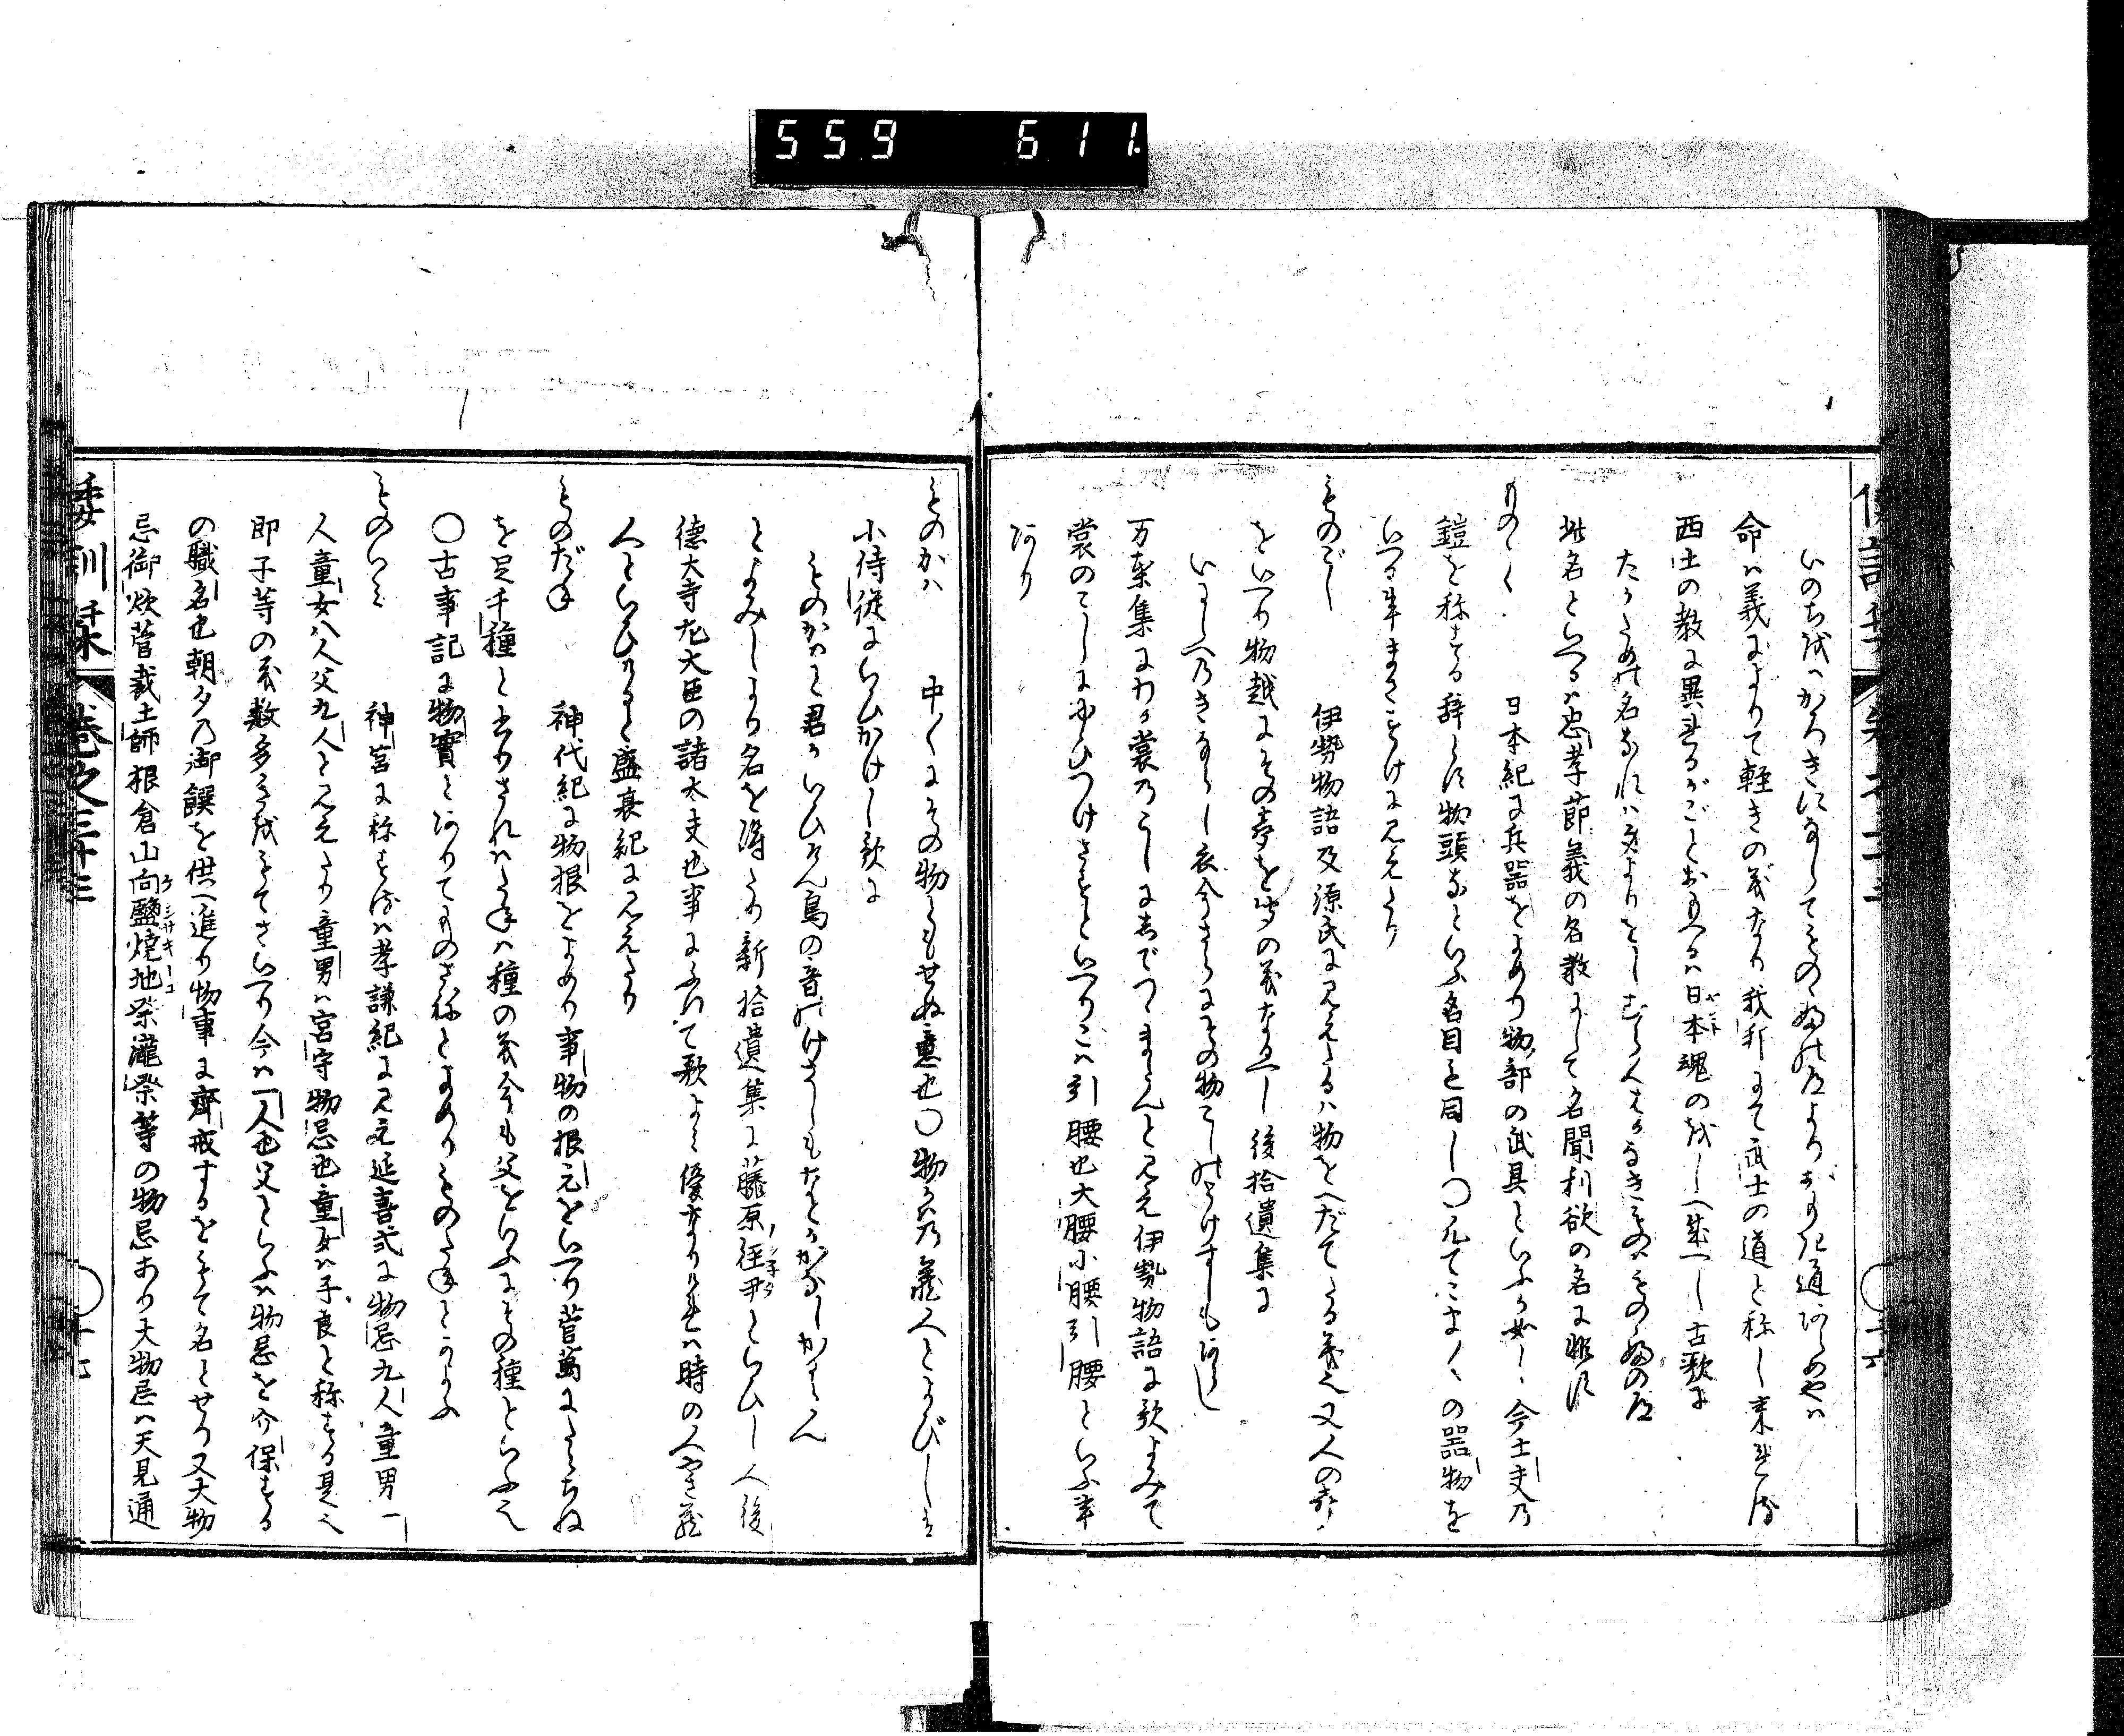 559 611
いのちはかろきになしてものゝふの道よりおもき道あらめやは
命は義によりて軽きの義なり我邦にて武士の道と称し来れる
西土の教に異るがごとおもへるは日本魂のをしへ成へし古歌に
たか名ならは
此名といへるは忠孝節義の名教にして名聞利欲の名に非す
ものゝぐ 日本紀に兵器をよめり物部の武具といふか如し今士夫の
鎧を称する辞とす物頭などいふ名目も同し〇凡てこまこまの器物を
いへる事まさことけに見えたり
ものごし 伊勢物語及源氏に見えたるは物をへだてたる義也又人の声
をいへり物越にその声をきくの義なるへし後拾遺集に
いにしへのきならし衣今さらにその物こしのとけすしもあらし
万葉集にわか裳のこしに
裳のこしにゆひつけさすといへりこは引腰也大腰小腰引腰といふ事
あり
ものかは 中々にその物ともせぬ意也〇物かはの蔵人とよびしは
小侍従にいひかけし歌に
ものかはと君かいひけん鳥の音のけさしもなとかかなしかるらん
とよみしより名を得たり新拾遺集に藤原経尹といひし人後
徳大寺左大臣の諸太夫也事にふれて歌よく優なりければ時の人やさ蔵
人といひけると盛衰記に見えたり
ものだね 神代紀に物根をよめり事物の根元をいへり菅万にたらちね
を足千種と書りされはたねは種の義今も父をいふにその種といふ也
〇古事記に物實とありてものざねとよめりものたねとかよふ
ものいみ 神宮に称するは孝謙紀に見え延喜式に物忌九人童男一
人童女八人父九人と見えたり童男は宮守物忌也童女は子良と称する是也
即子等の義数多きをもてさいへり今は一人也父といふは物忌を介保する
の職名也朝夕の御饌を供へ進り物事に齋戒するをもて名とせり又大物
忌御炊菅裁土師根倉山向鹽焼地祭瀧祭等の物忌あり大物忌は天見通
倭訓栞 巻之三十三